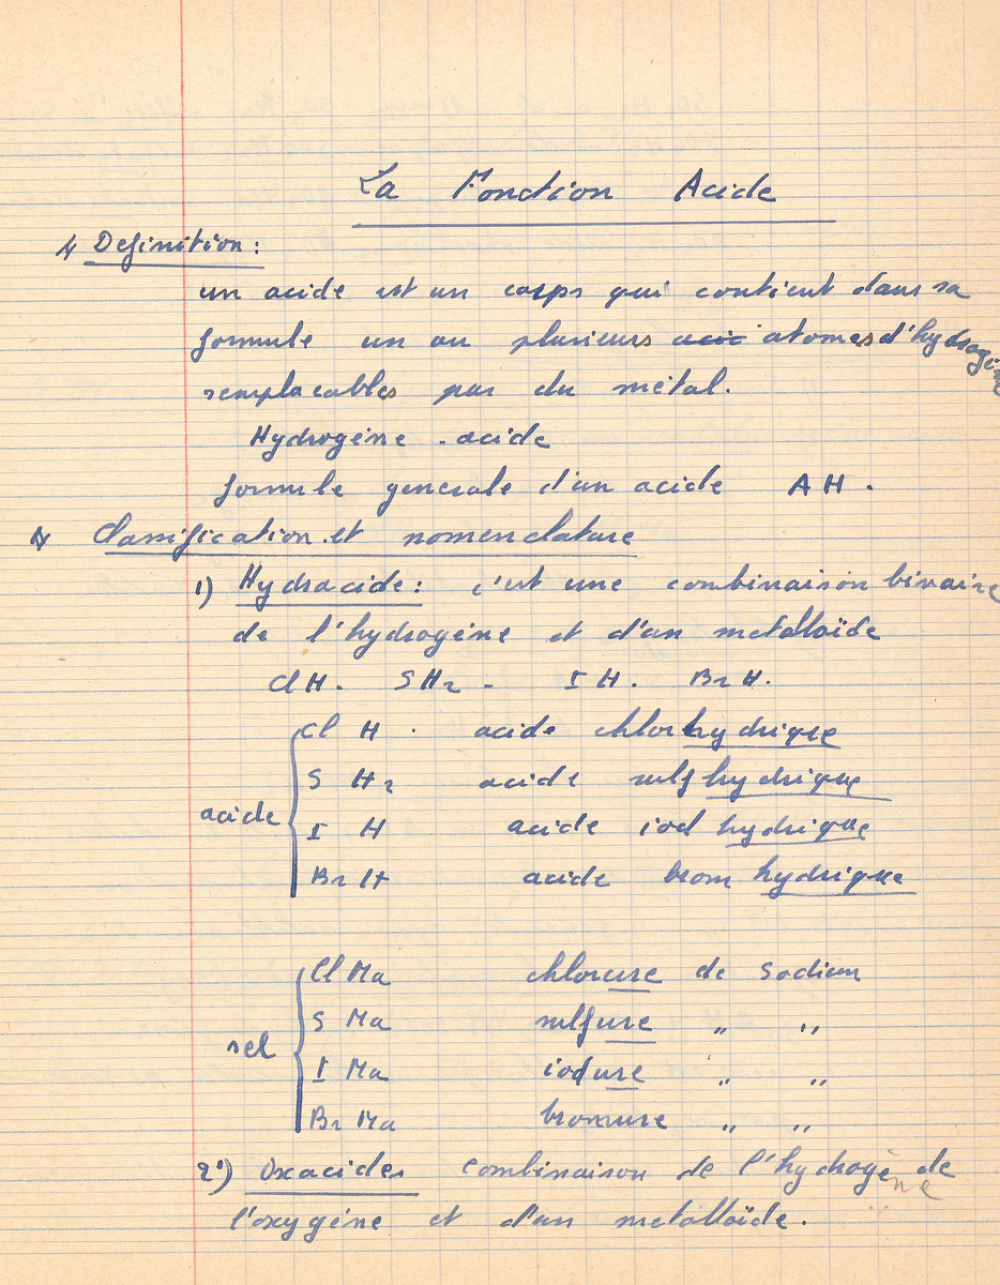 La Fonction Acide
1/ Definition :
un acide est un corps qui contient dans sa
formule un ou plusieurs acic atomes d'hydrogène
remplacables par du métal.
Hydrogène - acide
formule generale d'un acide AH.
Classification et nomenclature
1) Hydracide : c'est une combinaison binaire
de l'hydrogène et d'un metalloïde
ClH. SH2 - IH. BrH.
Cl H . acide chlorhydrique
S H2 acide sulfhydrique
acide
I H acide iodhydrique
Br H acide bromhydrique
Cl Na chlorure de Sodium
S Na sulfure " "
sel
I Na iodure " "
Br Na bromure " "
2°) Oxacides combinaison de l'hydrogène de
l'oxygène et d'un metalloïde.